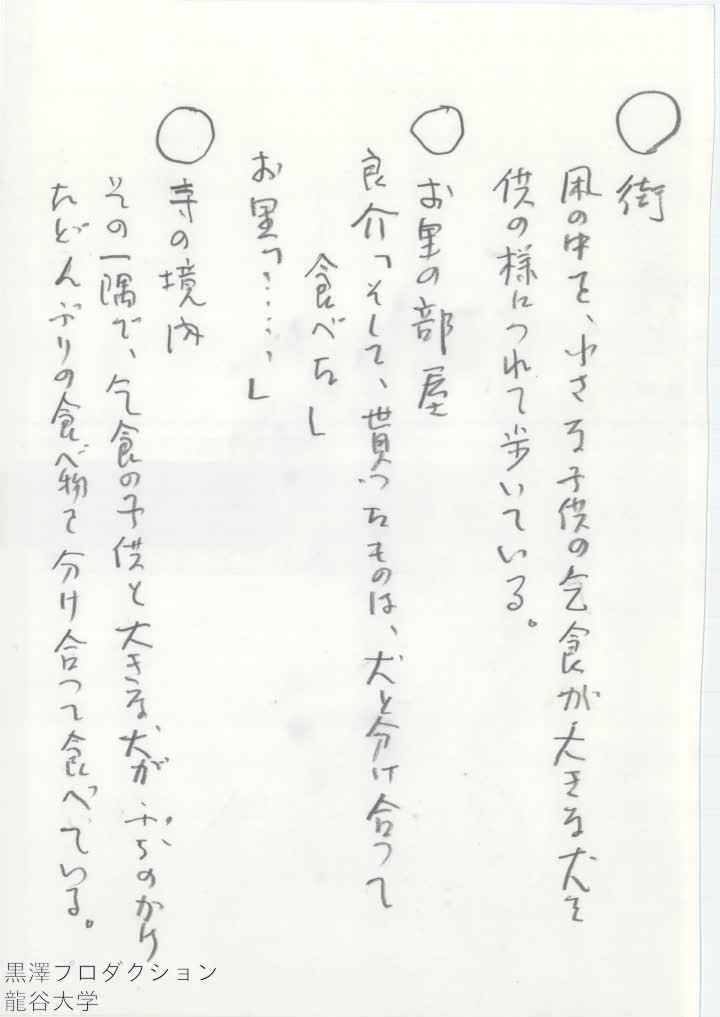 ○ 街
凩の中を、小さな子供の乞食が大きな犬を
供の様につれて歩いている。
○ お里の部屋
良介「そして、貰ったものは、犬と分け合って
食べた」
お里「‥‥‥」
○ 寺の境内
その一隅で、乞食の子供と大きな犬がぶちのかけ
たどんぶりの食べ物を分け合って食べている。
黒澤プロダクション
龍谷大学